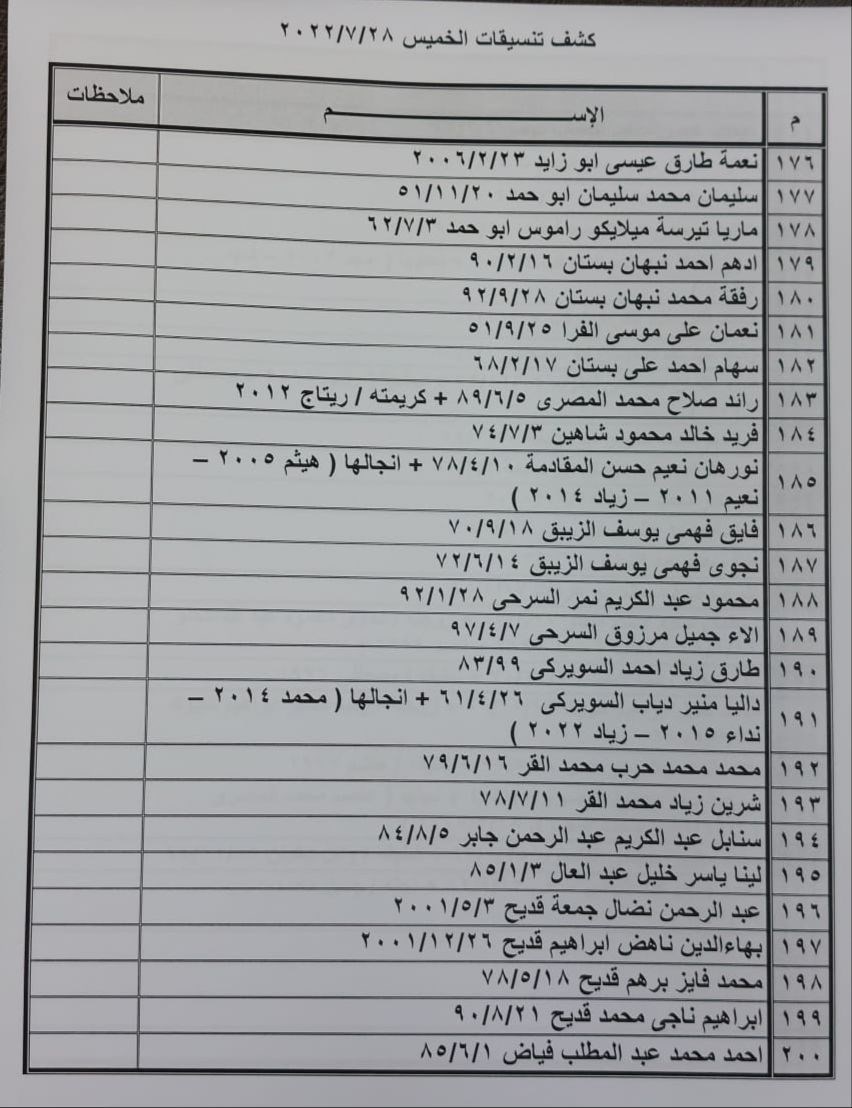 كشف تنسيقات الخميس ٢٠٢٢/٧/٢٨
م الإســـــــــم ملاحظات
١٧٦ نعمة طارق عيسى ابو زايد ٢٠٠٦/٢/٢٣
١٧٧ سليمان محمد سليمان ابو حمد ٥١/١١/٢٠
١٧٨ ماريا تيرسة ميلايكو راموس ابو حمد ٦٢/٧/٣
١٧٩ ادهم احمد نبهان بستان ٩٠/٢/١٦
١٨٠ رفقة محمد نبهان بستان ٩٢/٩/٢٨
١٨١ نعمان على موسى الفرا ٥١/٩/٢٥
١٨٢ سهام احمد على بستان ٦٨/٢/١٧
١٨٣ رائد صلاح محمد المصرى ٨٩/٦/٥ + كريمته / ريتاج ٢٠١٢
١٨٤ فريد خالد محمود شاهين ٧٤/٧/٣
١٨٥ نورهان نعيم حسن المقادمة ٧٨/٤/١٠ + انجالها ( هيثم ٢٠٠٥ –
نعيم ٢٠١١ – زياد ٢٠١٤ )
١٨٦ فايق فهمى يوسف الزيبق ٧٠/٩/١٨
١٨٧ نجوى فهمى يوسف الزيبق ٧٢/٦/١٤
١٨٨ محمود عبد الكريم نمر السرحى ٩٢/١/٢٨
١٨٩ الاء جميل مرزوق السرحى ٩٧/٤/٧
١٩٠ طارق زياد احمد السويركى ٨٣/٩٩
١٩١ داليا منير دياب السويركى ٦١/٤/٢٦ + انجالها ( محمد ٢٠١٤ –
نداء ٢٠١٥ – زياد ٢٠٢٢ )
١٩٢ محمد محمد حرب محمد القر ٧٩/٦/١٦
١٩٣ شرين زياد محمد القر ٧٨/٧/١١
١٩٤ سنابل عبد الكريم عبد الرحمن جابر ٨٤/٨/٥
١٩٥ لينا ياسر خليل عبد العال ٨٥/١/٣
١٩٦ عبد الرحمن نضال جمعة قديح ٢٠٠١/٥/٣
١٩٧ بهاءالدين ناهض ابراهيم قديح ٢٠٠١/١٢/٢٦
١٩٨ محمد فايز برهم قديح ٧٨/٥/١٨
١٩٩ ابراهيم ناجى محمد قديح ٩٠/٨/٢١
٢٠٠ احمد محمد عبد المطلب فياض ٨٥/٦/١